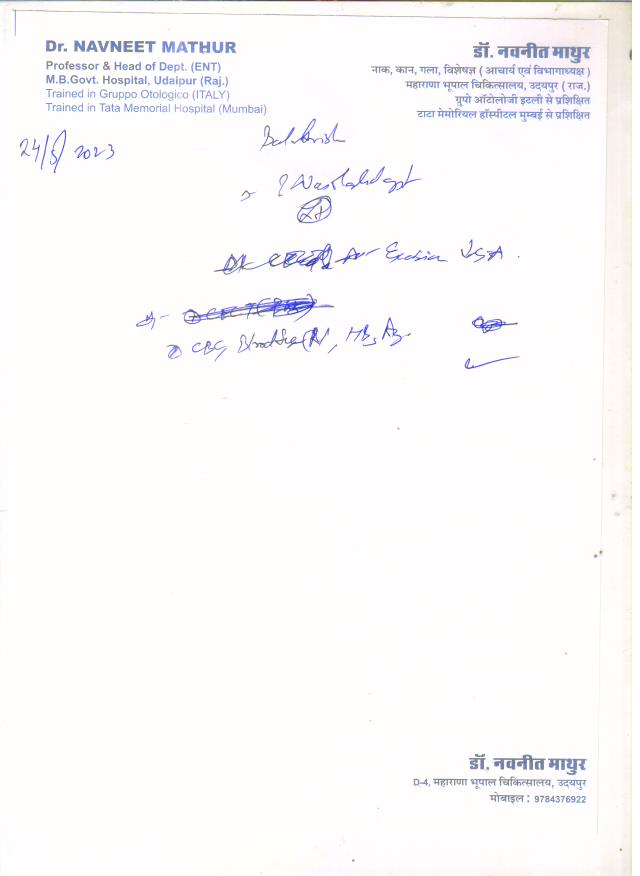 Dr. NAVNEET MATHUR
Professor & Head of Dept. (ENT)
M.B.Govt. Hospital, Udaipur (Raj.)
Trained in Gruppo Otologico (ITALY)
Trained in Tata Memorial Hospital (Mumbai)
डॉ. नवनीत माथुर
नाक, कान, गला, विशेषज्ञ ( आचार्य एवं विभागाध्यक्ष )
महाराणा भूपाल चिकित्सालय, उदयपुर ( राज.)
ग्रुपो ऑटोलोजी इटली से प्रशिक्षित
टाटा मेमोरियल हॉस्पीटल मुम्बई से प्रशिक्षित
24/5/2023
Excision
CBC, HBsAg
डॉ. नवनीत माथुर
D-4, महाराणा भूपाल चिकित्सालय, उदयपुर
मोबाइल : 9784376922